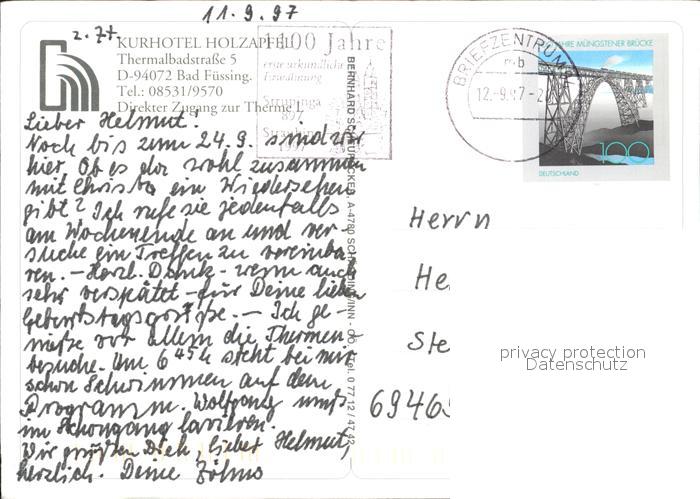 11.9.97
KURHOTEL HOLZAPFEL
Thermalbadstraße 5
D-94072 Bad Füssing.
Tel.: 08531/9570
Direkter Zugang zur Therme I.
1100 Jahre
erste urkundliche
Erwähnung
897
BRIEFZENTRUM
mb
12.-9.97-2
JAHRE MÜNGSTENER BRÜCKE
100
DEUTSCHLAND
Lieber Helmut!
Noch bis zum 24.9. sind wir
hier. Ob es da wohl zusammen
mit Christa ein Wiedersehen
gibt? Ich rufe sie jedenfalls
am Wochenende an und ver-
suche ein Treffen zu vereinba-
ren. – Herzl. Dank – wenn auch
sehr verspätet – für Deine lieben
Geburtstagsgrüße. – Ich ge-
nieße vor allem die Thermen-
besuche. Um 6 45 h steht bei mir
schon Schwimmen auf dem
Programm. Wolfgang muß
im Schongang lavieren.
Wir grüßen Dich, lieber Helmut,
herzlich. Deine
BERNHARD
Tel. 0 77 12 / 47 42
Herrn
He
Ste
6946
privacy protection
Datenschutz